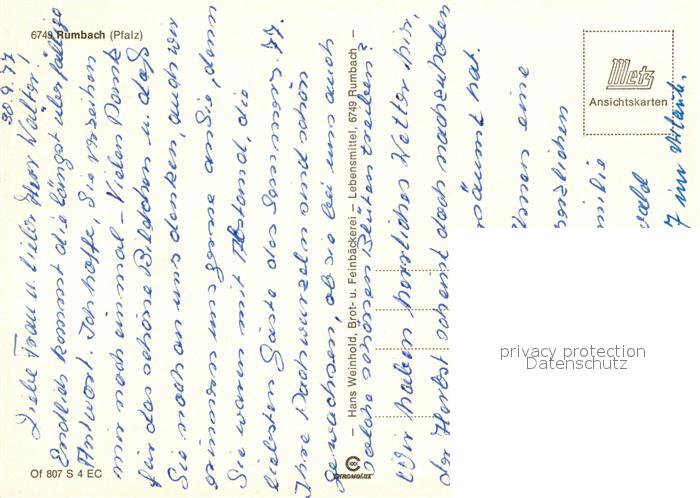 6749 Rumbach (Pfalz)
30.9.77
Liebe Frau u. lieber Herr Walter!
Endlich kommt die längst überfällige
Antwort. Ich hoffe, Sie verzeihen
mir noch einmal – Vielen Dank
für das schöne Bildchen u. daß
Sie noch an uns denken, auch wir
erinnern uns gerne an Sie, denn
Sie waren mit Abstand, die
liebsten Gäste des Sommers 77.
Ihre Dachwurzeln sind schön
gewachsen, ob sie bei uns auch
solche schönen Blüten treiben?
Wir haben herrliches Wetter hier,
der Herbst scheint doch nachzuholen
säumt hat.
Ihnen eine
herzlichen
milie
wald
7 im Urlaub.
– Hans Weinhold, Brot- u. Feinbäckerei – Lebensmittel, 6749 Rumbach –
CHROMOLUX
Metz
Ansichtskarten
privacy protection
Datenschutz
Of 807 S 4 EC